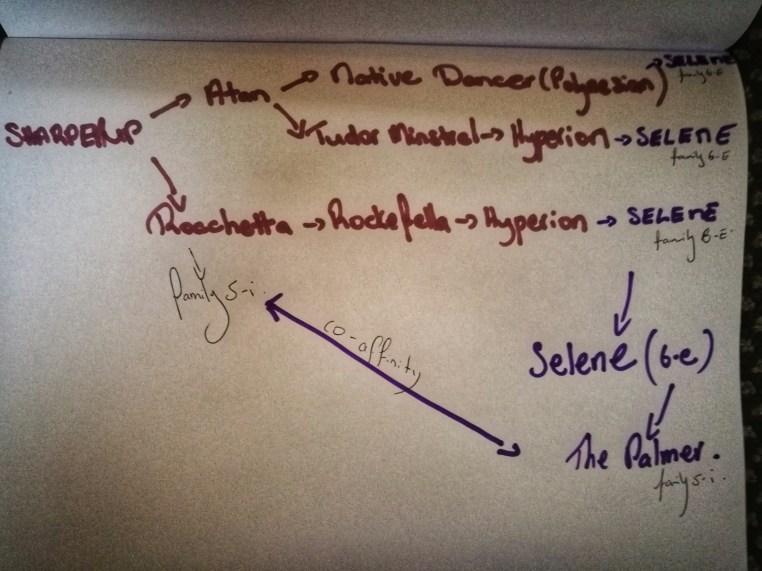 Native Dancer (Polynesian) → SELENE
family 6-E
SHARPEN UP → Atan
Tudor Minstrel → Hyperion → SELENE
family 6-E
Rocchetta → Rockefella → Hyperion → SELENE
family 6-E
family 5-i.
co-affinity
Selene (6-e)
The Palmer.
family 5-i.